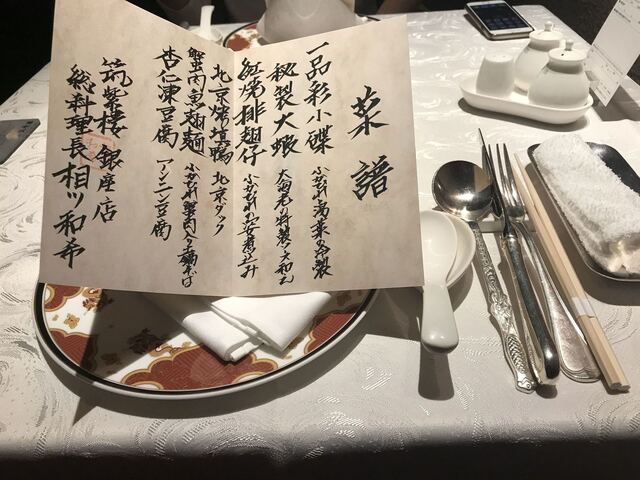 菜譜
一品彩小碟 ふかひれと湯葉の和製
秘製大蝦
紅焼排翅仔 ふかひれの姿煮込み
北京焼填鴨 北京ダック
蟹肉魚翅麺 ふかひれ蟹肉入り土鍋そば
杏仁凍豆腐 アンニン豆腐
筑紫樓 銀座店
総料理長 相ツ和希